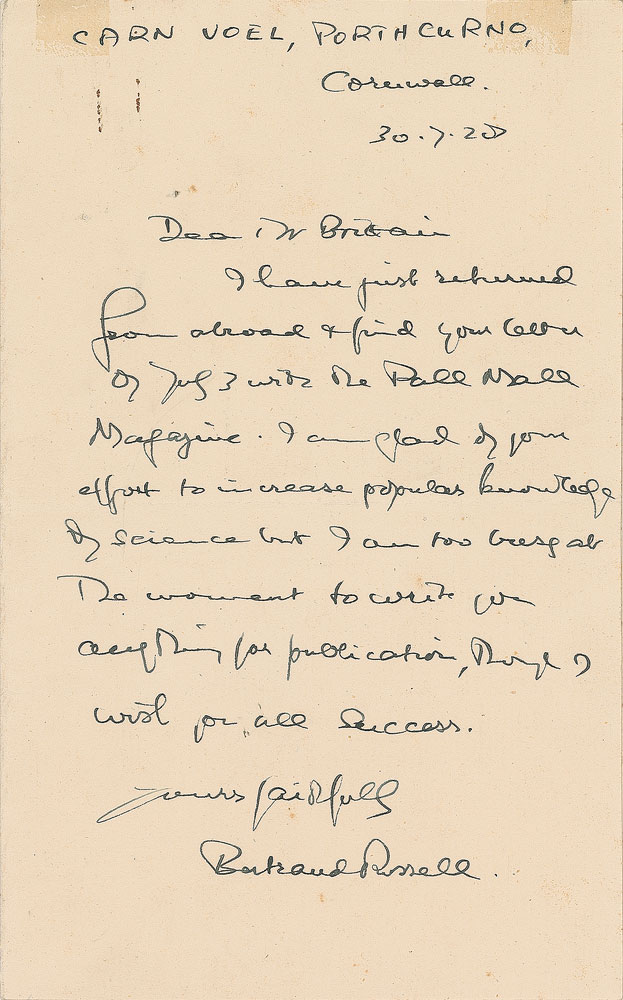 CARN VOEL, PORTHCURNO,
Cornwall.
30.7.28
Dear Mr Brittain
I have just returned
from abroad & find your letter
of July 3 with the Pall Mall
Magazine. I am glad of your
effort to increase popular knowledge
of science but I am too busy at
the moment to write you
anything for publication, though I
wish you all success.
Yours faithfully
Bertrand Russell.